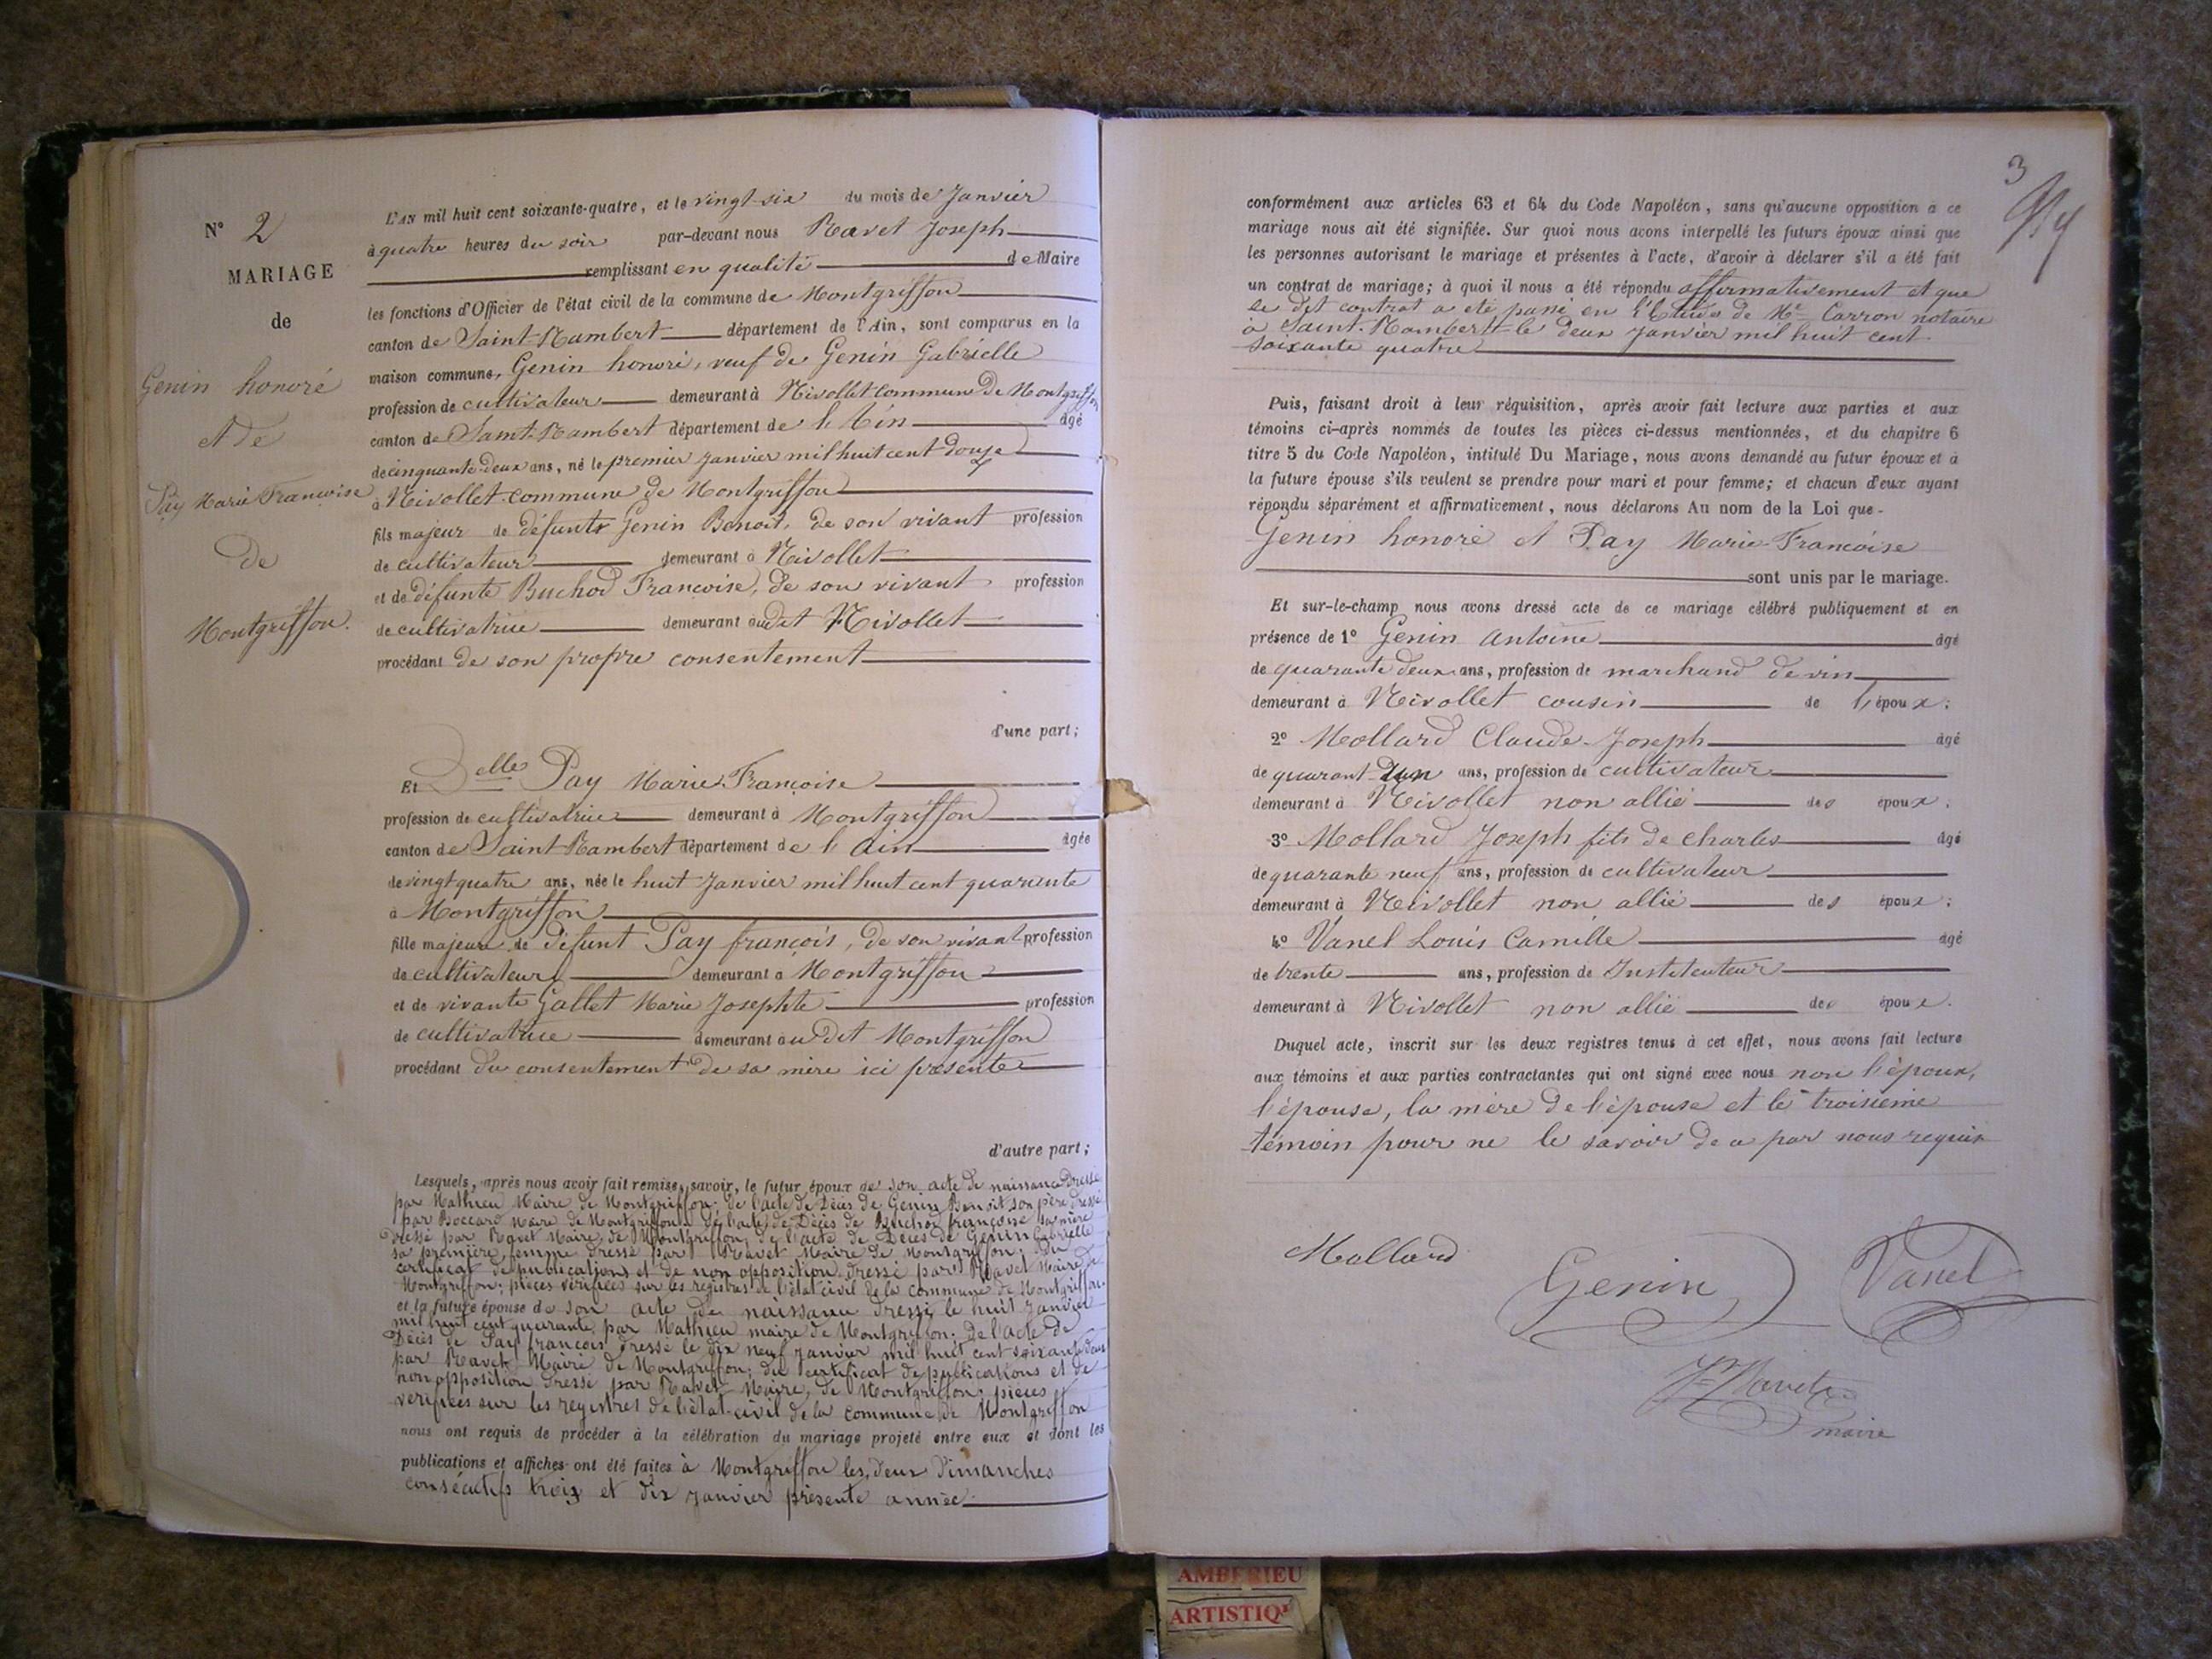 N° 2
MARIAGE
de
Genin honoré
et de
Pay Marie Françoise
de
Montgriffon.
L'AN mil huit cent soixante-quatre, et le vingt-six du mois de Janvier
à quatre heures du soir par-devant nous Ravet Joseph
remplissant en qualité de Maire
les fonctions d'Officier de l'état civil de la commune de Montgriffon
canton de Saint-Rambert département de l'Ain, sont comparus en la
maison commune, Genin honoré, veuf de Genin Gabrielle
profession de cultivateur demeurant à Nivollet commune de Montgriffon
canton de Saint-Rambert département de l'Ain âgé
de cinquante-deux ans, né le premier Janvier mil huit cent douze
à Nivollet commune de Montgriffon
fils majeur de défunts Genin Benoit, de son vivant profession
de cultivateur demeurant à Nivollet
et de défunte Buchod Françoise, de son vivant profession
de cultivatrice demeurant audit Nivollet
procédant de son propre consentement
d'une part;
Et Delle Pay Marie Françoise
profession de cultivatrice demeurant à Montgriffon
canton de Saint Rambert département de l'Ain âgée
de vingt quatre ans, née le huit Janvier mil huit cent quarante
à Montgriffon
fille majeure de défunt Pay françois, de son vivant profession
de cultivateur demeurant à Montgriffon
et de vivante Gallet Marie Josephte profession
de cultivatrice demeurant audit Montgriffon
procédant du consentement de sa mère ici présente
d'autre part;
Lesquels, après nous avoir fait remise, savoir, le futur époux de son acte de naissance dressé
par Mathieu Maire de Montgriffon; de l'acte de Décès de Genin Benoit son père dressé
par Boccard Maire de Montgriffon; de l'acte de Décès de Buchod françoise sa mère
dressé par Ravet Maire, de Montgriffon; de l'acte de Décès de Genin Gabrielle
sa première femme dressé par Ravet Maire de Montgriffon; du
certificat de publications et de non opposition dressé par Ravet Maire de
Montgriffon; pièces vérifiées sur les registres de l'état civil de la commune de Montgriffon.
et la future épouse de son acte de naissance dressé le huit Janvier
mil huit cent quarante par Mathieu maire de Montgriffon; de l'acte de
Décès de Pay françois dressé le dix neuf janvier mil huit cent soixante deux
par Ravet Maire de Montgriffon; du certificat de publications et de
non opposition dressé par Ravet Maire, de Montgriffon; pièces
vérifiées sur les registres de l'état-civil de la commune de Montgriffon
nous ont requis de procéder à la célébration du mariage projeté entre eux et dont les
publications et affiches ont été faites à Montgriffon les deux Dimanches
consécutifs trois et dix janvier présente année.
3
conformément aux articles 63 et 64 du Code Napoléon, sans qu'aucune opposition à ce
mariage nous ait été signifiée. Sur quoi nous avons interpellé les futurs époux ainsi que
les personnes autorisant le mariage et présentes à l'acte, d'avoir à déclarer s'il a été fait
un contrat de mariage; à quoi il nous a été répondu affirmativement et que
le dit contrat a été passé en l'Etude de Me Carron notaire
à Saint-Rambert le deux janvier mil huit cent
soixante quatre
Puis, faisant droit à leur réquisition, après avoir fait lecture aux parties et aux
témoins ci-après nommés de toutes les pièces ci-dessus mentionnées, et du chapitre 6
titre 5 du Code Napoléon, intitulé Du Mariage, nous avons demandé au futur époux et à
la future épouse s'ils veulent se prendre pour mari et pour femme; et chacun d'eux ayant
répondu séparément et affirmativement, nous déclarons Au nom de la Loi que
Genin honoré et Pay Marie-Françoise
sont unis par le mariage.
Et sur-le-champ nous avons dressé acte de ce mariage célébré publiquement et en
présence de 1° Genin Antoine âgé
de quarante deux ans, profession de marchand de vin
demeurant à Nivollet cousin de l'époux;
2° Mollard Claude-Joseph âgé
de quarant d'un ans, profession de cultivateur
demeurant à Nivollet non allié des époux;
3° Mollard Joseph fils de Charles âgé
de quarante neuf ans, profession de cultivateur
demeurant à Nivollet non allié des époux;
4° Vanel Louis Camille âgé
de trente ans, profession de Instituteur
demeurant à Nivollet non allié des époux.
Duquel acte, inscrit sur les deux registres tenus à cet effet, nous avons fait lecture
aux témoins et aux parties contractantes qui ont signé avec nous non l'époux,
l'épouse, la mère de l'épouse et le troisième
témoin pour ne le savoir de a par nous requis
Mollard
Genin
Vanel
Jh Ravet
maire
AMBERIEU
ARTISTIQ